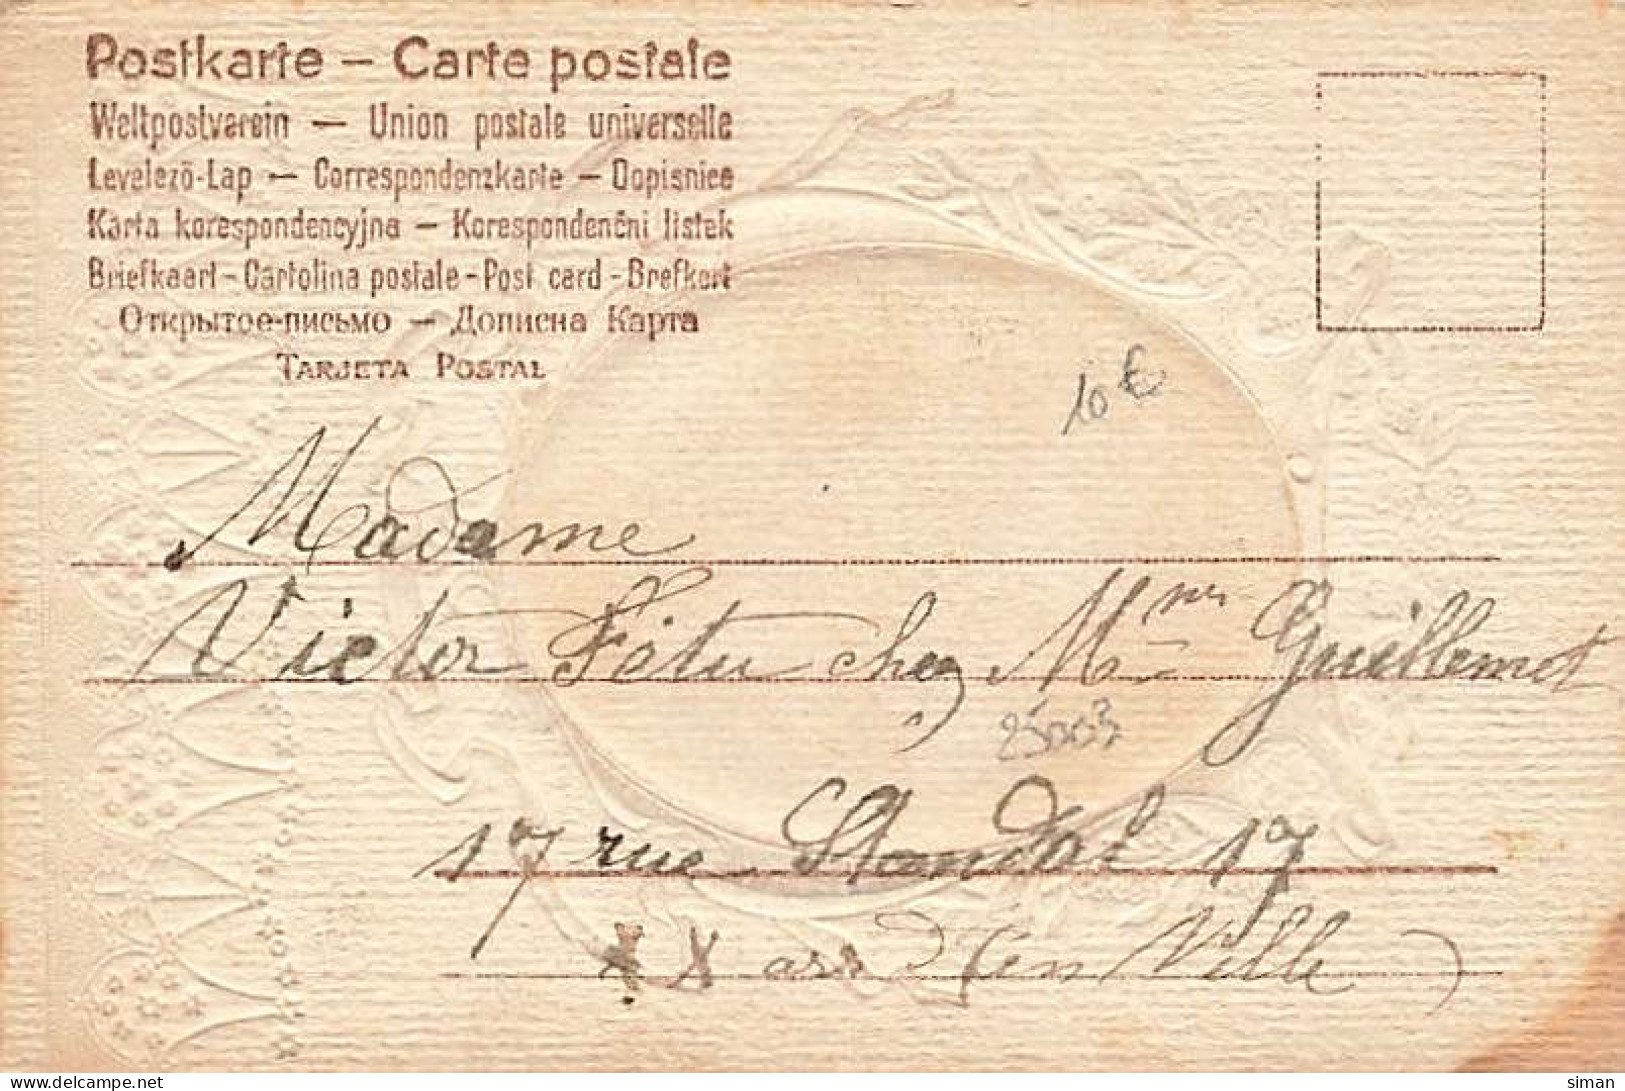 Postkarte – Carte postale
Weltpostverein – Union postale universelle
Levelező-Lap – Correspondenzkarte – Dopisnice
Karta korespondencyjna – Korespondenční listek
Briefkaart – Cartolina postale – Post card – Brefkort
Открытое-письмо – Дописна Карта
TARJETA POSTAL
10 €
Madame
Victor Fétu chez Mme Guillemot
17 rue Standal 17
XX arr (en Ville)
www.delcampe.net
siman